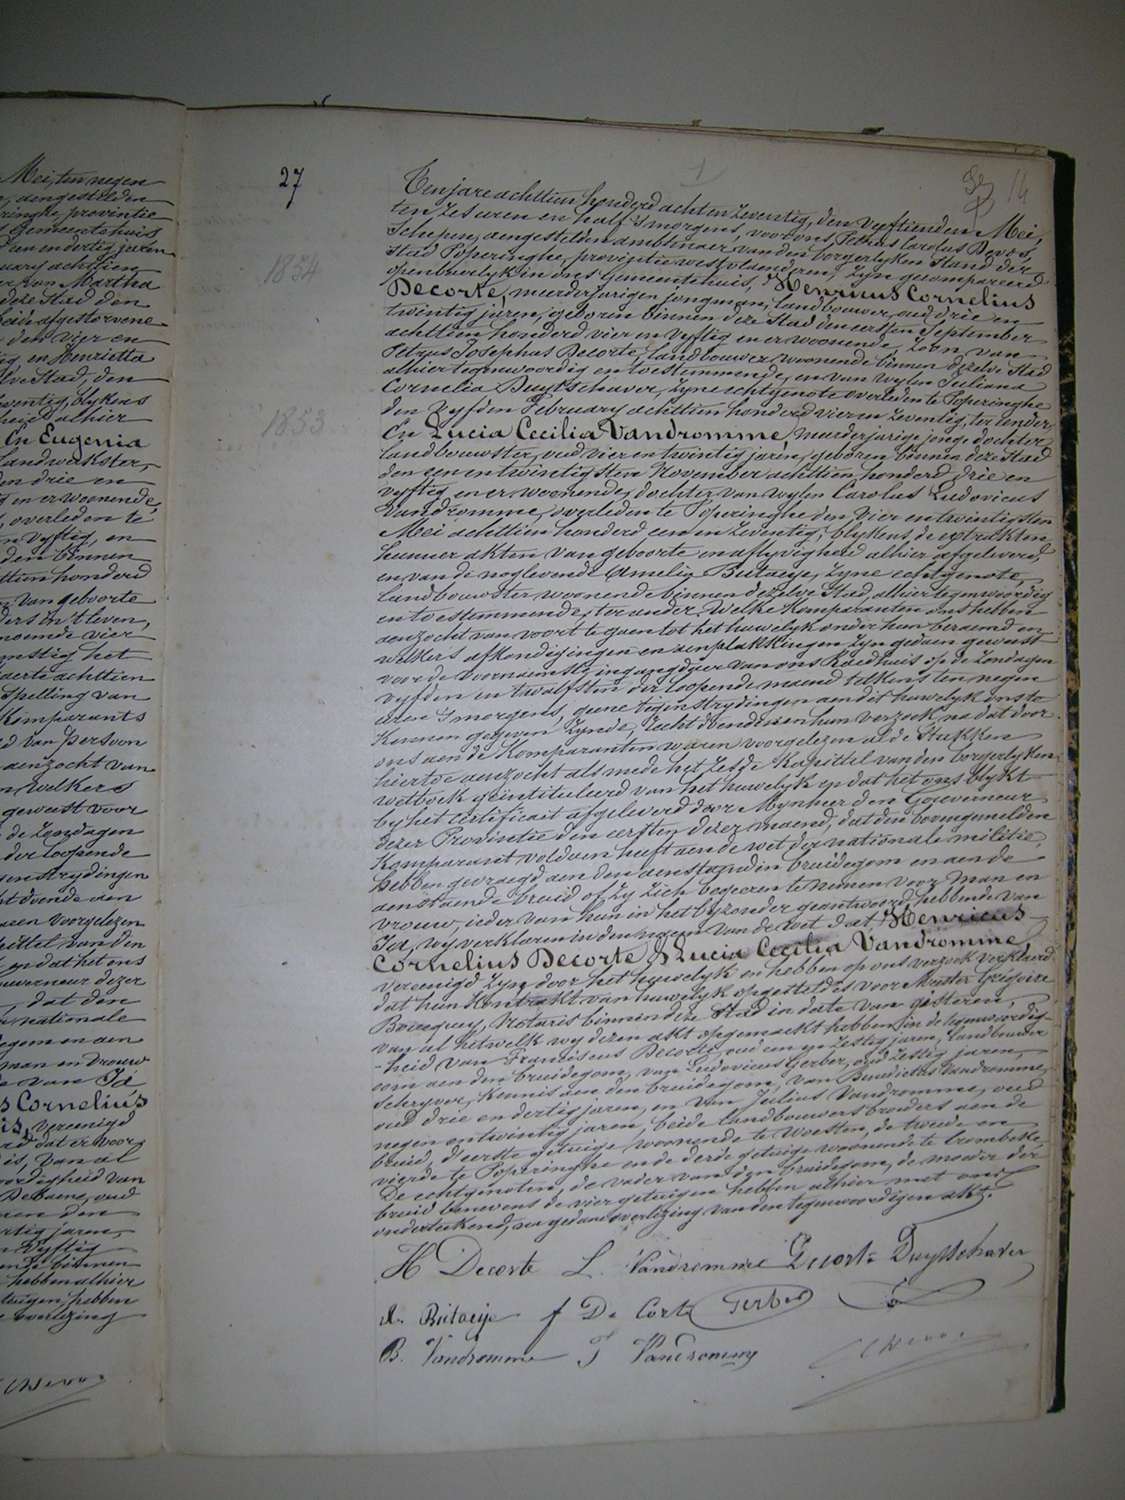 Mei, ten negen
aengestelden
ringhe, provintie
Gemeentehuis
en dertig jaren
uary achttien
van Martha
deze Stad den
beide afgestorvene
den Vier en
en Henrietta
Stad, den
blykens
alhier
En Eugenia
Landwerkster,
en drie en
en er woonende,
overleden te
vyftig, en
den binnen
ttien honderd
van geboorte
ders in 't leven,
noemde vier
het
achttien
Stelling van
Komparants
van Persoon
aenzocht van
welkers
geweest voor
de Zondagen
der loopende
genstrydingen
doende aen
voorgelezen
van den
dat het ons
uverneur dezer
dat den
nationale
egom en aen
man en vrouw
van Ja
s Cornelius
is, vereenigd
dat er voor
is, van al
oordigheid van
Debaene, oud
den
rtig jaren,
Vyftig
binnen
hebben alhier
tuigen, hebben
voorlezing
27
1
14
1854
1853
Ten jare achttien honderd acht en Zeventig, den Vyftienden Mei,
ten Zes uren en half 's morgens, voor ons, Petrus Carolus Devos,
Schepen, aengestelden ambtenaer van den borgerlyken Stand der
Stad Poperinghe, provintie westvlaenderen, Zyn gecompareerd
openbaerlyk in ons gemeentehuis, Henricus Cornelius
Decorte, meerderjarigen jongman, landbouwer, oud drie en
twintig jaren, geboren binnen deze Stad den eersten September
achttien honderd vier en vyftig en er woonende, Zoon van
Petrus Josephus Decorte, landbouwer, woonende binnen dezelve Stad
alhier tegenwoordig en toestemmende, en van wylen Juliana
Cornelia Duytschaver, Zyne echtgenote overleden te Poperinghe
den Vyfden February achttien honderd vier en Zeventig, ter eender,
En Lucia Cecilia Vandromme, meerderjarige jonge dochter,
landbouwster, oud vier en twintig jaren, geboren binnen deze Stad
den een en twintigsten November achttien honderd drie en
vyftig, en er woonende, dochter van wylen Carolus Ludovicus
Vandromme, overleden te Poperinghe den Vier en twintigsten
Mei achttien honderd een en Zeventig, blykens de extrakten
hunner akten van geboorte en aflyvigheid alhier afgeleverd,
en van de noglevende Amelia Butaeye, Zyne echtgenote,
landbouwster woonende binnen dezelve Stad, alhier tegenwoordig
en toestemmende, ter ander. Welke Komparanten ons hebben
aenzocht van voort te gaen tot het huwelyk onder hun beraemd en
welkers afkondigingen en aenplakkingen Zyn gedaen geweest
voor de voornaemste ingangdeur van ons Raedhuis op de Zondagen
vyfden en twalfsten der loopende maend telkens ten negen
uren 's morgens, geene tegenstrydingen aen dit huwelyk ons te
kennen gegeven Zynde, Recht doende aen hun verzoek, na dat door
ons aen de Komparanten waren voorgelezen al de Stukken
hiertoe aenzocht als mede het Zesde Kapittel van den borgerlyken
wetboek geïntituleerd van het huwelyk en dat het ons blykt
by het Certificaet afgeleverd door Mynheer den Gouverneur
dezer Provintie den eersten dezer maend, dat den bovengemelden
Komparant voldaen heeft aen de wet der nationale militie,
hebben gevraegd aen den aenstaenden bruidegom en aen de
aenstaende bruid of Zy Zich begeeren te nemen voor man en
vrouw, ieder van hun in het byzonder geantwoord hebbende van
Ja, wy verklaren in den naem van de wet dat Henricus
Cornelius Decorte & Lucia Cecilia Vandromme,
vereenigd Zyn door het huwelyk en hebben op ons verzoek verklaerd
dat hun Kontrakt van huwelyk opgesteld is voor Meester Grégoire
Notaris binnen deze Stad in date van gisteren,
van al hetwelk wy dezen akt opgemaekt hebben in de tegenwoordig-
-heid van Franciscus Decorte, oud een en Zestig jaren, landbouwer
oom aen den bruidegom, van Ludovicus Gerber, oud Zestig jaren,
Schryver, Kennis aen den bruidegom, van Benedictus Vandromme,
oud drie en dertig jaren, en van Julius Vandromme, oud
negen en twintig jaren, beide landbouwers broeders aen de
bruid, d'eerste getuige woonende te Woesten, de tweede en
vierde te Poperinghe en de derde getuige woonende te Crombeke.
De echtgenoten, de vader van den bruidegom, de moeder der
bruid benevens de vier getuigen hebben alhier met ons
onderteekend, na gedane voorlezing van den tegenwoordigen akt.
H Decorte L. Vandromme Decorte Duytschaver
A. Butaeije f De Corte Gerber
B. Vandromme J Vandromme